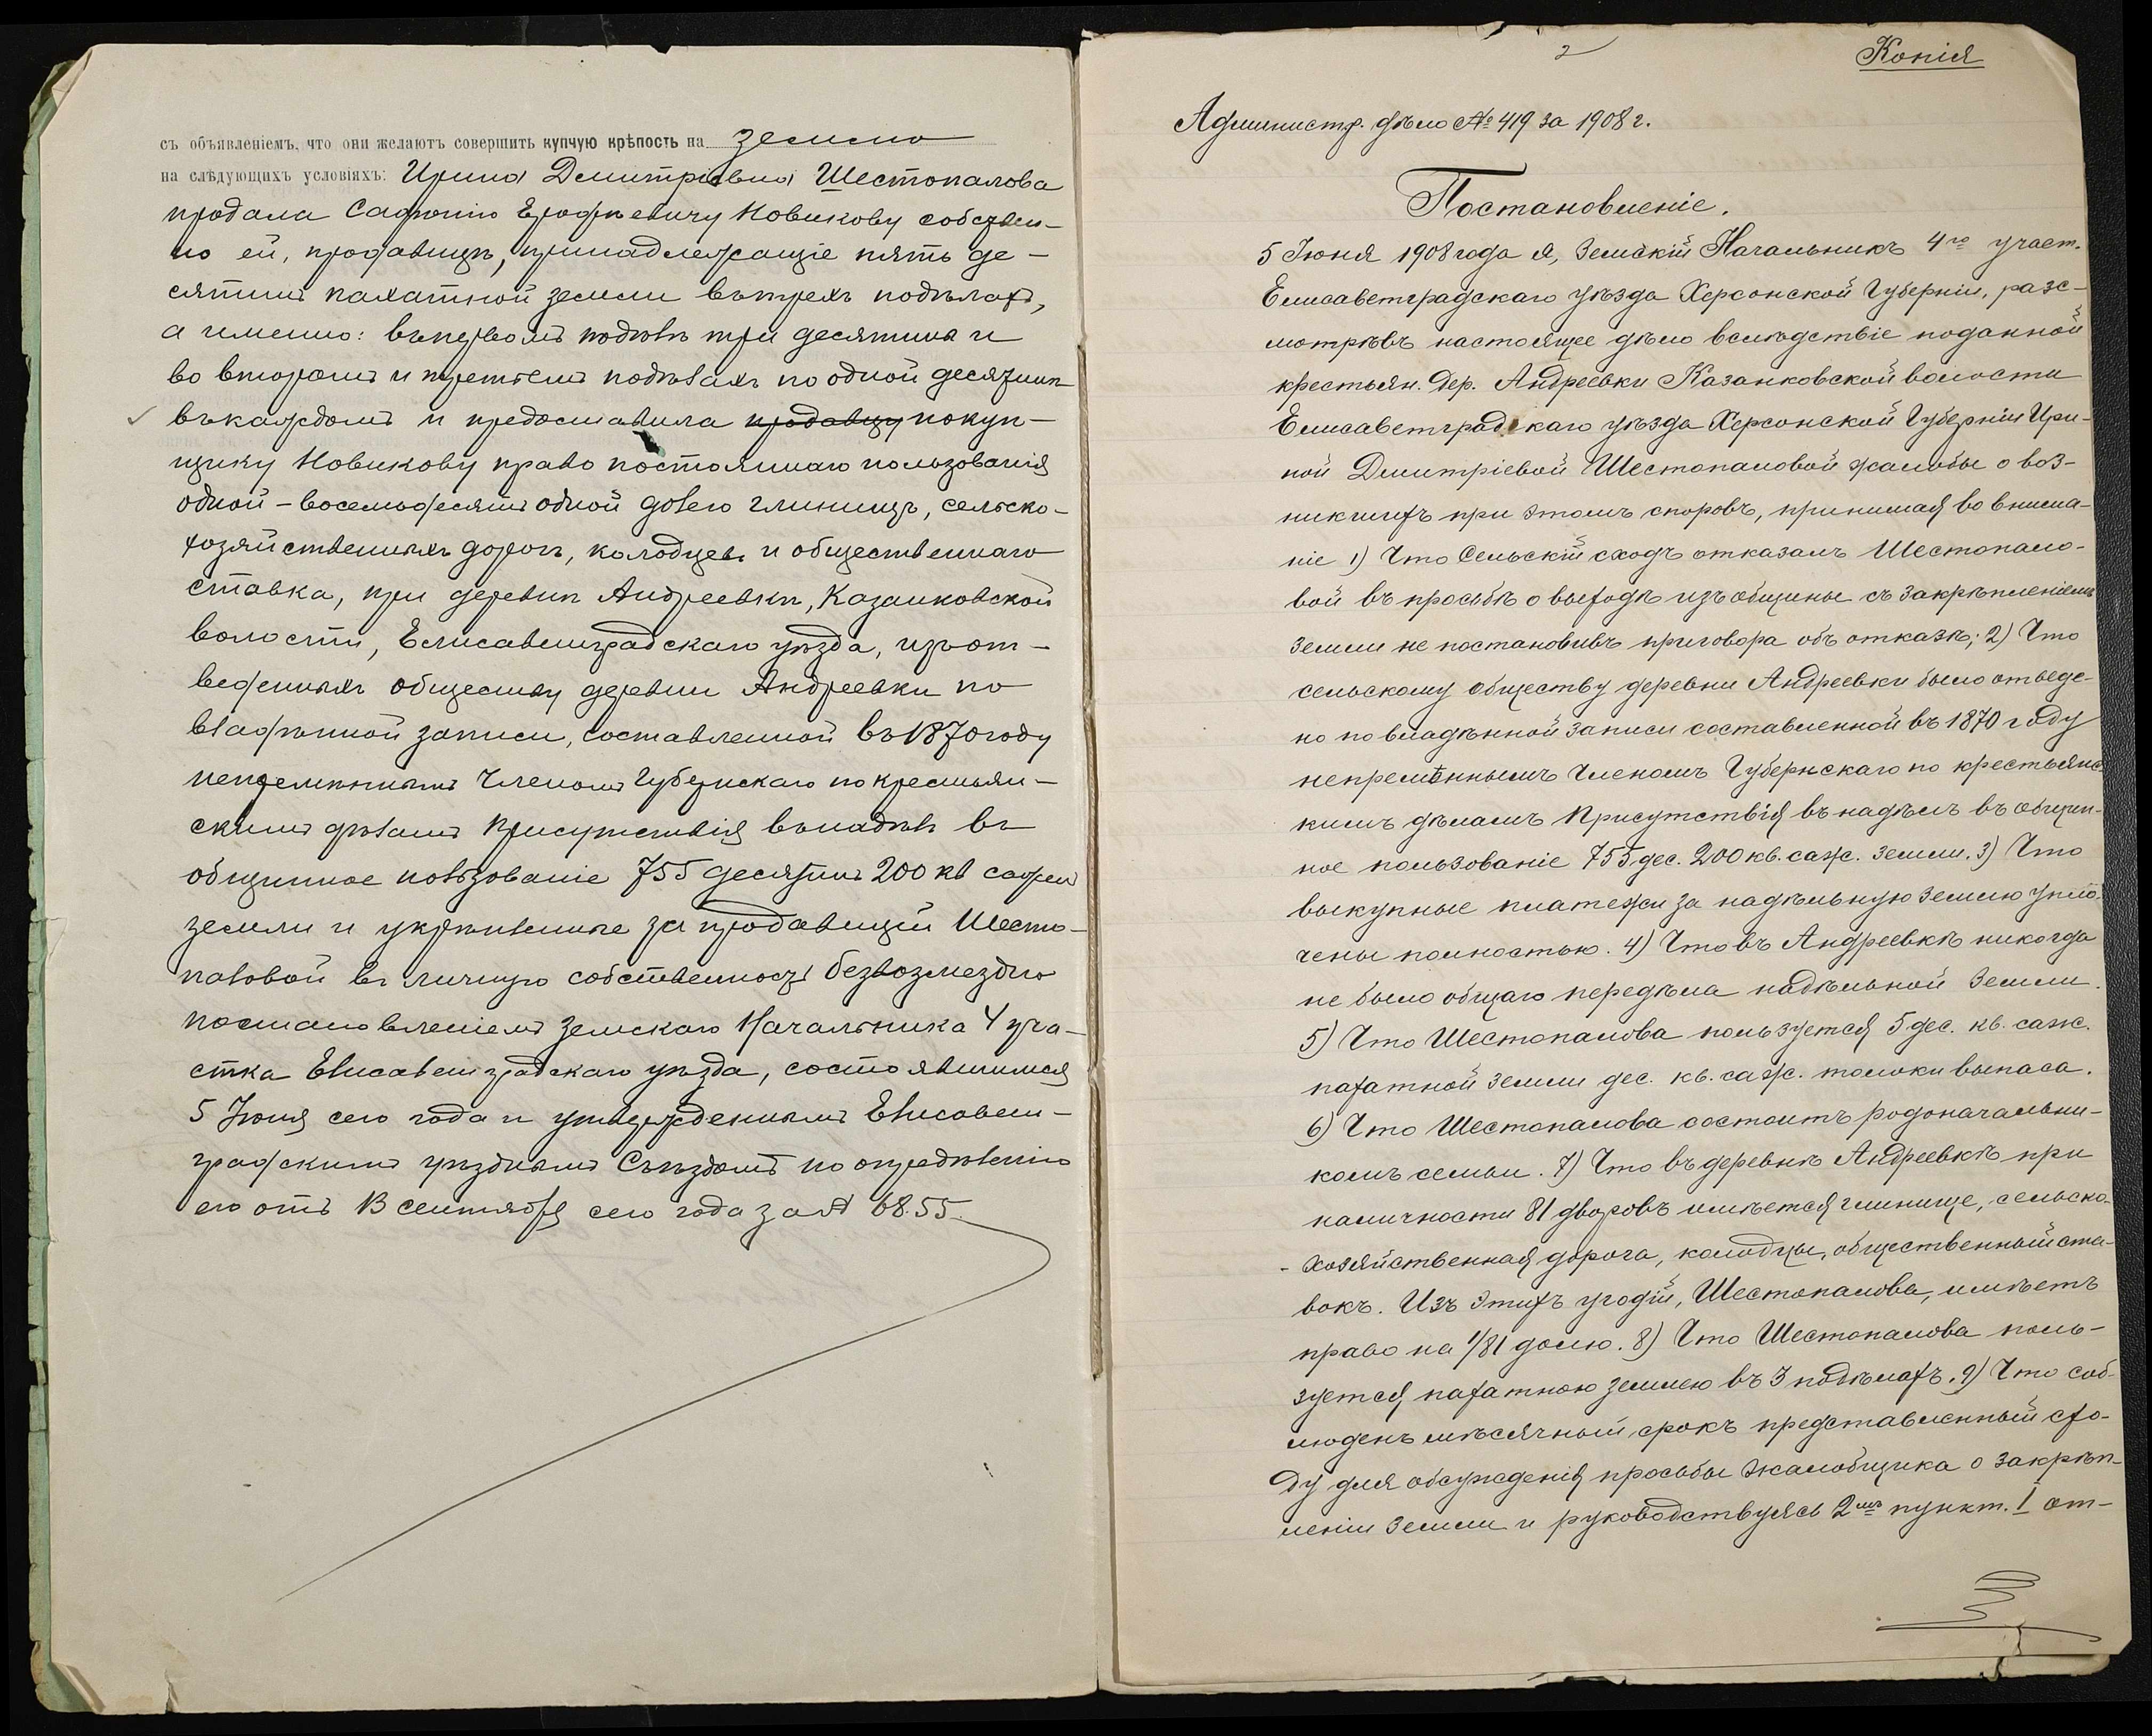 съ объявленіемъ, что они желаютъ совершить купчую крѣпость на землю
на слѣдующихъ условіяхъ: Ирина Дмитріевна Шестопалова
продала Сафонію Ерофѣевичу Новикову собствен-
но ей, продавщицѣ, принадлежащіе пять де-
сятинъ пахатной земли въ трехъ подѣлахъ,
а именно: въ первомъ подѣлѣ три десятины и
во второмъ и третьемъ подѣлахъ по одной десятинѣ
въ каждомъ и предоставила продавцу покуп-
щику Новикову право постояннаго пользованія
одной - восемьдесятъ одной долею глинищъ, сельско-
хозяйственныхъ дорогъ, колодцевъ и общественнаго
ставка, при деревнѣ Андреевкѣ, Казанковской
волости, Елисаветградскаго уѣзда, изъ от-
веденныхъ обществу деревни Андреевки по
владѣнной записи, составленной въ 1870 году
непремѣннымъ Членомъ Губернскаго по крестьян-
скимъ дѣламъ Присутствія въ надѣлъ въ
общинное пользованіе 755 десятинъ 200 кв сажен
земли и укрѣпленные за продавщицей Шесто-
паловой въ личную собственность безвозмездно
постановленіемъ Земскаго Начальника 4 уча-
стка Елисаветградскаго уѣзда, состоявшимся
5 Іюня сего года и утвержденнымъ Елисавет-
градскимъ уѣзднымъ Съѣздомъ по опредѣленію
его отъ 13 сентября сего года за № 6855.
2
Копія
Администр. дѣло № 419 за 1908 г.
Постановленіе.
5 Іюня 1908 года я, Земскій Начальникъ 4го участ.
Елисаветградскаго уѣзда Херсонской Губерніи, разс-
мотрѣвъ настоящее дѣло вслѣдствіе поданной
крестьян. дер. Андреевки Казанковской волости
Елисаветградскаго уѣзда Херсонской Губерніи Ири-
ной Дмитріевой Шестопаловой жалобы о воз-
никшихъ при этомъ споровъ, принимая во внима-
ніе 1) Что Сельскій сходъ отказалъ Шестопало-
вой въ просьбѣ о выходѣ изъ общины съ закрѣпленіемъ
земли не постановивъ приговора объ отказѣ; 2) Что
сельскому обществу деревни Андреевки было отведе-
но по владѣнной записи составленной въ 1870 году
непремѣннымъ Членомъ Губернскаго по крестьянс
кимъ дѣламъ Присутствія въ надѣлъ въ общин-
ное пользованіе 755 дес. 200 кв. саж. земли. 3) Что
выкупные платежи за надѣльную землю упла-
чены полностью. 4) Что въ Андреевкѣ никогда
не было общаго передѣла надѣльной земли.
5) Что Шестопалова пользуется 5 дес. кв. саж.
пахатной земли дес. кв. саж. толоки выпаса.
6) Что Шестопалова состоитъ родоначальни-
комъ семьи. 7) Что въ деревнѣ Андреевкѣ при
наличности 81 дворовъ имѣется глинище, сельско-
- хозяйственная дорога, колодцы, общественный ста-
вокъ. Изъ этихъ угодій, Шестопалова, имѣетъ
право на 1/81 долю. 8) Что Шестопалова поль-
зуется пахатною землею въ 3 подѣлахъ. 9) Что соб-
людёнъ мѣсячный срокъ представленный схо-
ду для обсужденія просьбы жалобщика о закрѣп-
леніи земли и руководствуясь 2мъ пункт. I от-